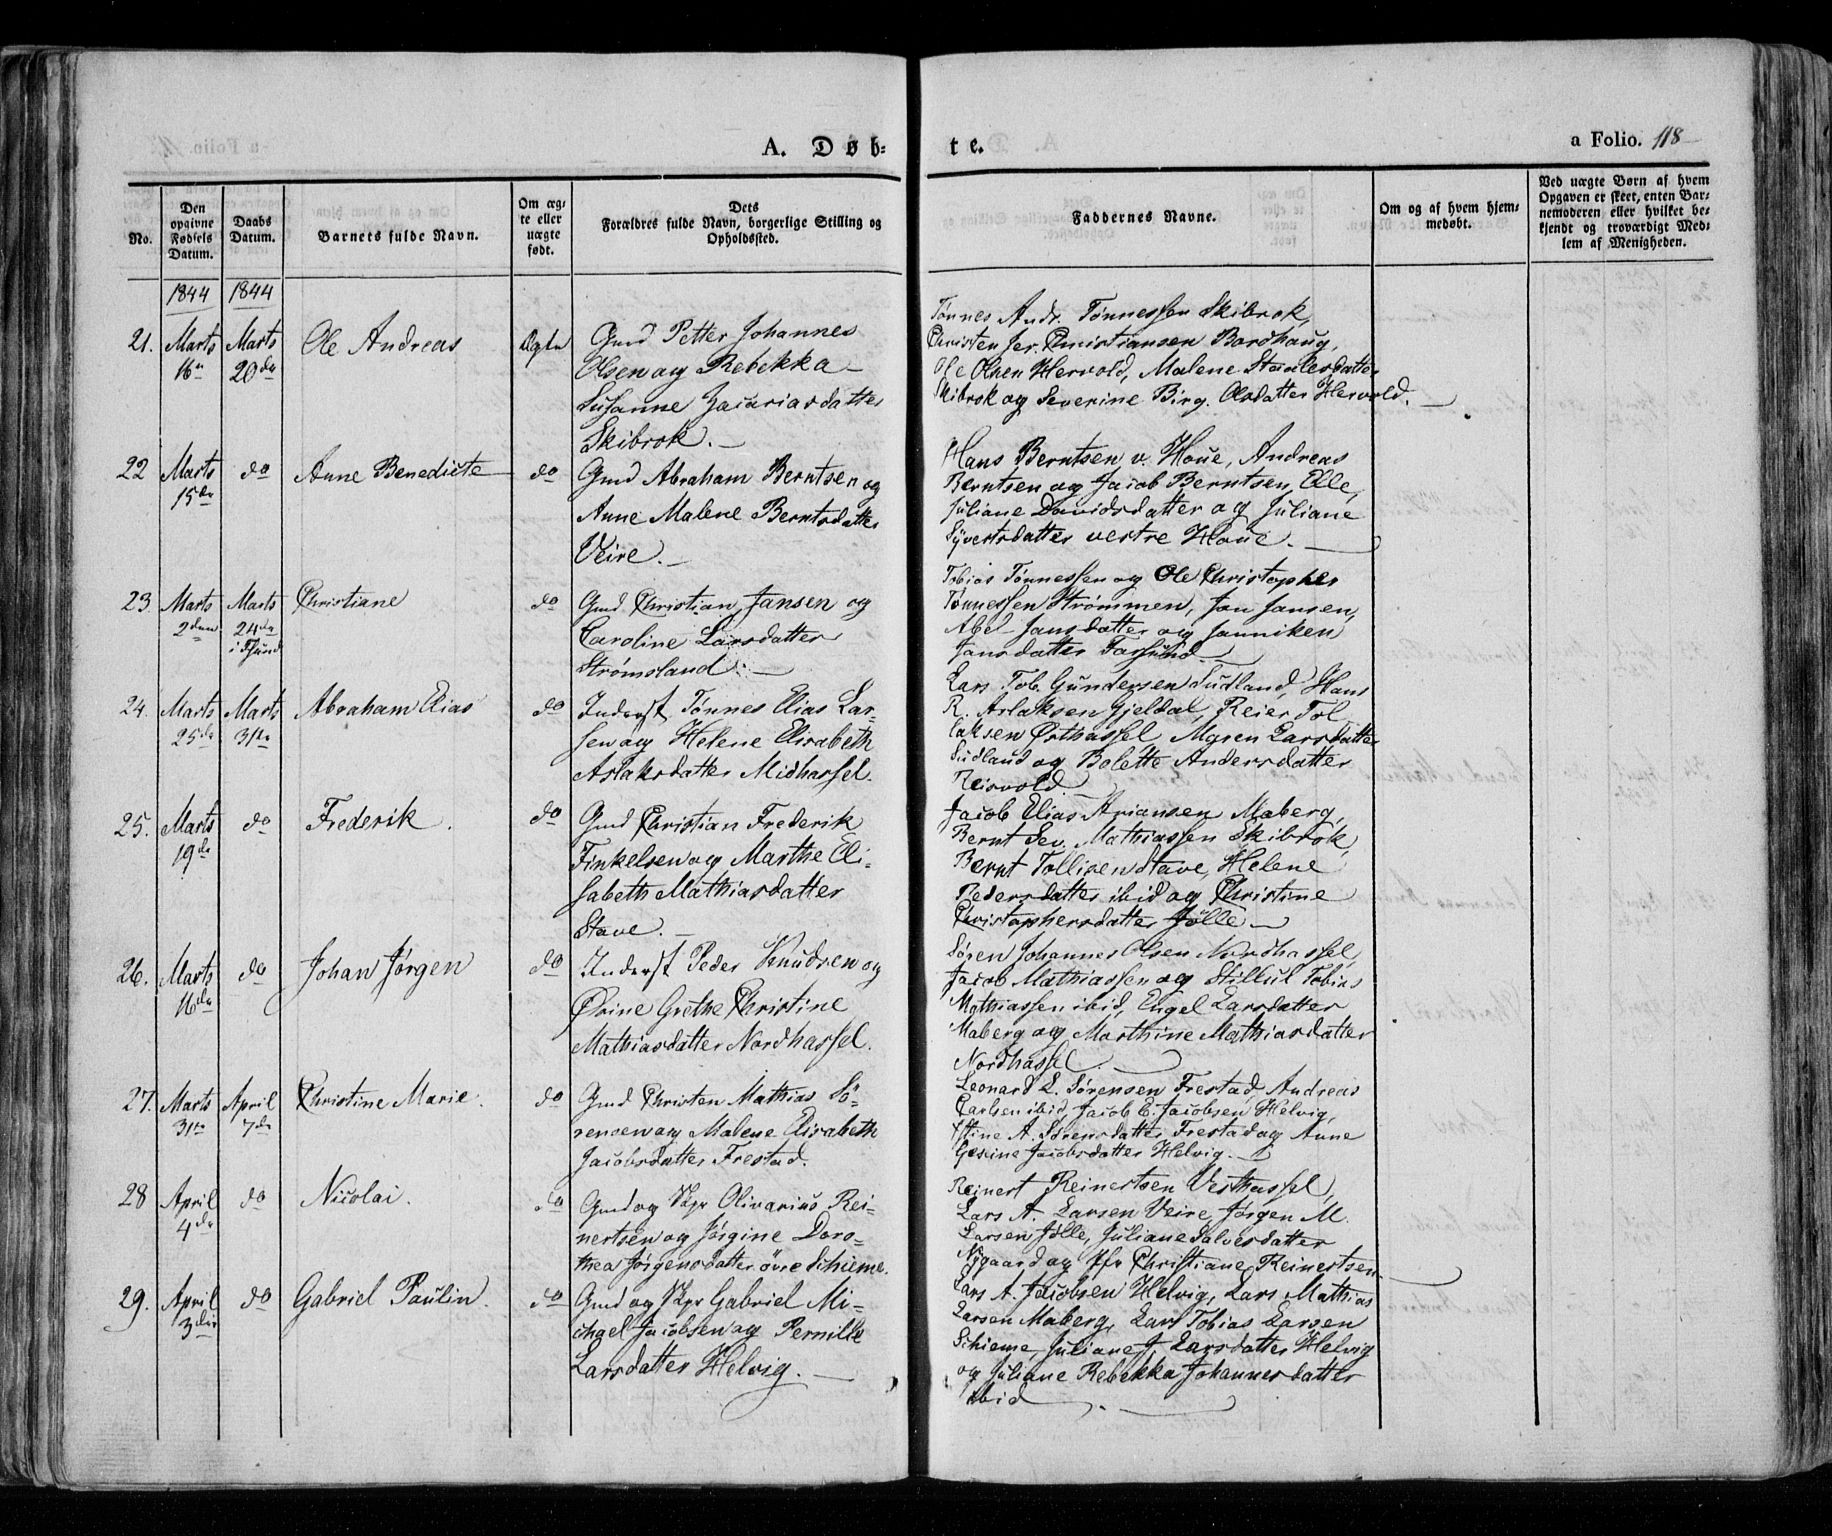 A. Døb-
te.
a Folio. 118
No.
Den opgivne Fødsels Datum.
Daabs Datum.
Barnets fulde Navn.
Om ægte eller uægte født.
Dets Forældres fulde Navn, borgerlige Stilling og Opholdssted.
Faddernes Navne.
Om og af hvem hjemmedøbt.
Ved uægte Børn af hvem Opgaven er skeet, enten Barnemoderen eller hvilket bekjendt og troværdigt Medlem af Menigheden.
1844 1844
21. Marts 16de
Marts 20de
Ole Andreas
Ægte
Gmd Petter Johannes
Olsen og Rebekka
Susanne Zacariasdatter
Skibrok.
Tønnes Andr. Tønnessen Skibrok,
Christen Jer. Christiansen Bordhaug,
Ole Olsen Hervold, Malene Staalesdatter
Skibrok og Severine Birg. Olsdatter Hervold.
22 Marts 15de
do
Anne Benedicte
do
Gmd Abraham Berntsen og
Anne Malene Berntsdatter
Veire.
Hans Berntsen v. Houe, Andreas
Berntsen og Jacob Berntsen Elle,
Juliane Davidsdatter og Juliane
Syvertsdatter vestre Houe.
23 Marts 2den
Marts 24de
i Fsund
Christiane
do
Gmd Christian Jansen og
Caroline Larsdatter
Strømsland.
Tobias Tønnessen og Ole Christopher
Tønnessen Strømmen, Jan Jansen,
Abel Jansdatter og Janniken
Jansdatter Farsund.
24. Marts 25de
Marts 31te
Abraham Elias
do
Inderst Tønnes Elias Lar-
sen og Helene Elisabeth
Aslaksdatter Midhassel.
Lars Tob. Gundersen Sudland, Hans
R. Aslaksen Gjeldal, Reier Tol
laksen Østhassel, Mgren Larsdatter
Sudland og Bolette Andersdatter
Reisvold.
25. Marts 19de
do
Frederik.
do
Gmd Christian Frederik
Finkelsen og Marthe Eli-
sabeth Mathiasdatter
Stave.
Jacob Elias Ariansen Maberg,
Bernt Sev. Mathiassen Skibrok,
Bernt Tollisen Stave, Helene
Pedersdatter ibid og Christine
Christophersdatter Jølle
26. Marts 16de
do
Johan Jørgen
do
Inderst Peder Knudsen og
Ovine Grethe Christine
Mathiasdatter Nordhassel.
Søren Johannes Olsen Nordhassel,
Jacob Mathiassen og Stillul Tobias
Mathiassen ibid, Engel Larsdatter
Maberg og Marthine Mathiasdatter
Nordhassel.
27. Marts 31te
April 7de
Christine Marie.
do
Gmd Christen Mathias Sö-
rensen og Malene Elisabeth
Jacobsdatter Frestad.
Leonard L. Sørensen Frestad, Andreas
Carlsen ibid, Jacob E. Jacobsen Helvig,
Stine A. Sørensdatter Frestad og Anne
Gesine Jacobsdatter Helvig.
28 April 4de
do
Nicolai.
do
Gmd og Skpr Olivarius Rei-
nertsen og Jørgine Doro-
thea Jørgensdatter övre Schieme.
Reinert Reinertsen Vesthassel,
Lars A. Larsen Veire, Jørgen M.
Larsen Jölle, Juliane Salvesdatter
Nygaard og Jfr Christiane Reinertsen
29. April 3die
do
Gabriel Paulin.
do
Gmd og Skpr Gabriel Mi-
chael Jacobsen og Pernille
Larsdatter Helvig.
Lars A. Jacobsen Helvig, Lars Mathias
Larsen Maberg, Lars Tobias Larsen
Schieme, Juliane J. Larsdatter Helvig
og Juliane Rebekka Johannesdatter
ibid